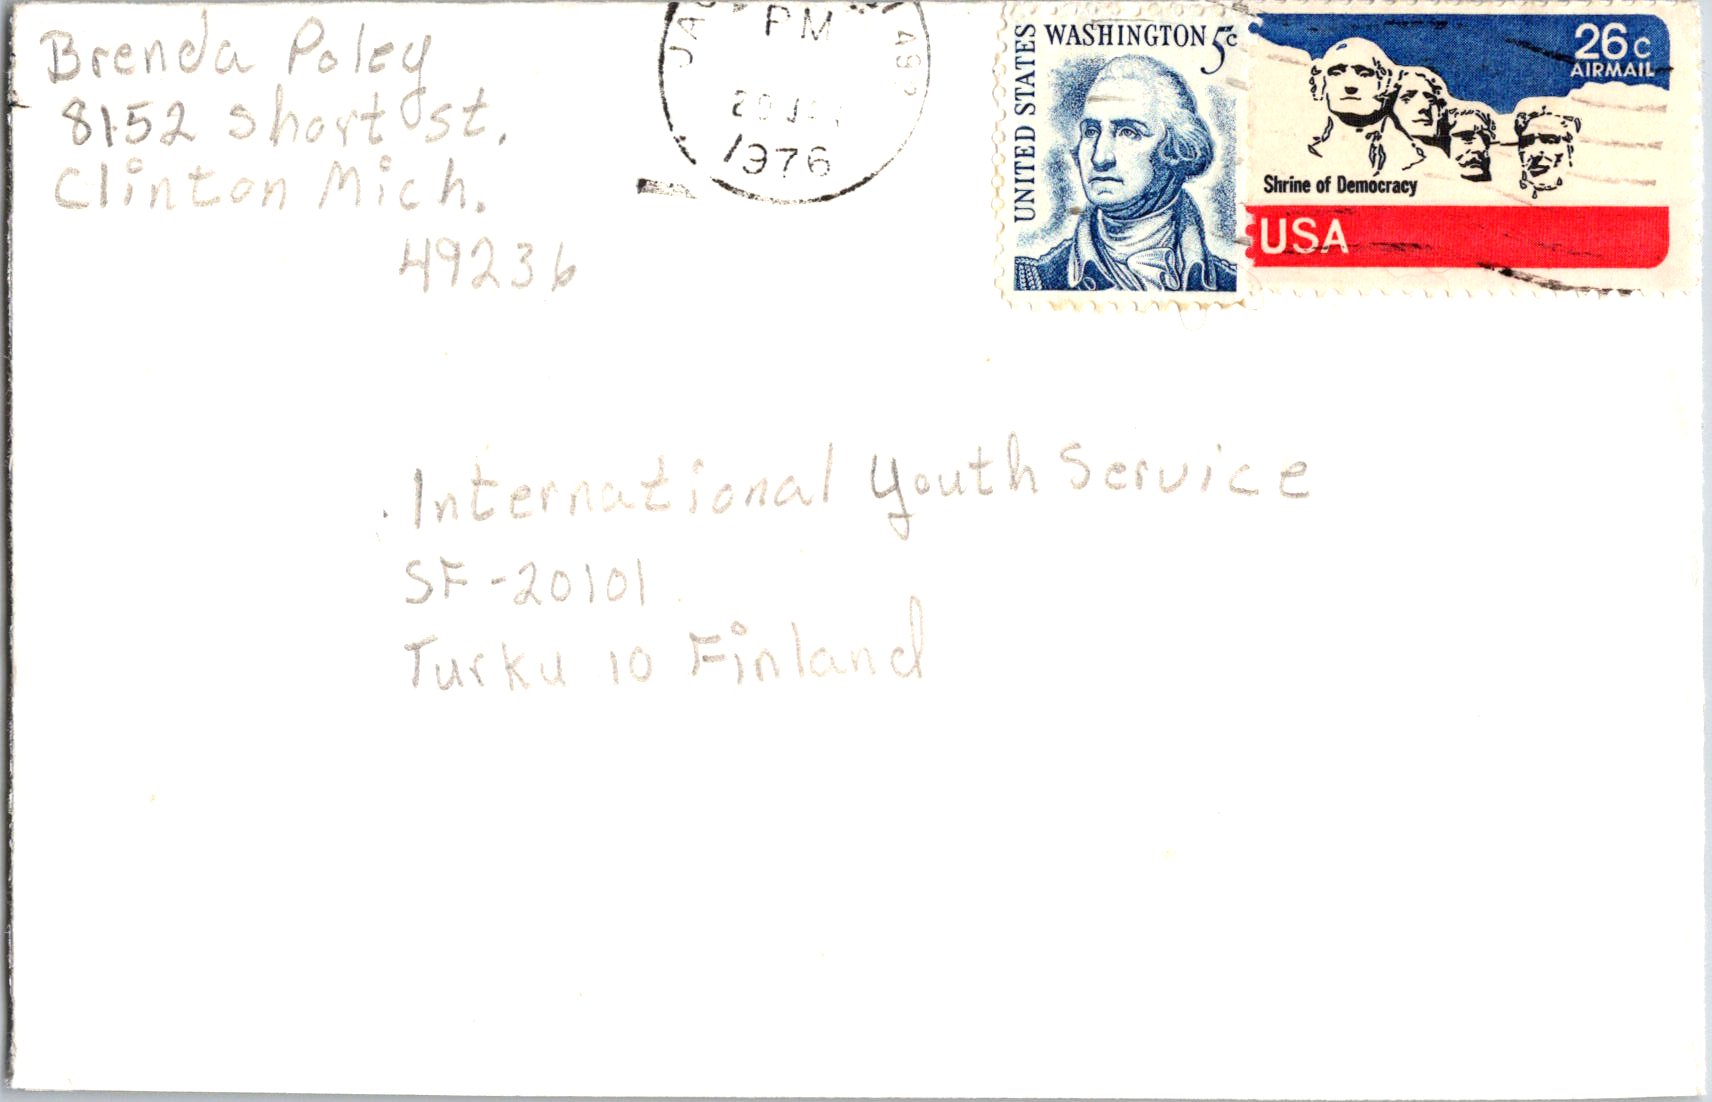 Brenda Poley
8152 short st.
Clinton Mich.
49236
PM
1976
UNITED STATES
WASHINGTON 5c
26c
AIRMAIL
Shrine of Democracy
USA
International Youth Service
SF-20101
Turku 10 Finland